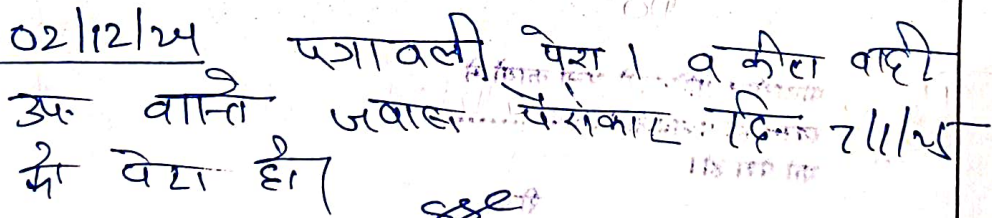 02/12/24 पत्रावली पेश। वकील वादी
उप. वास्ते जवाब पैरोकार दि. 7/1/25
को पेश हो।